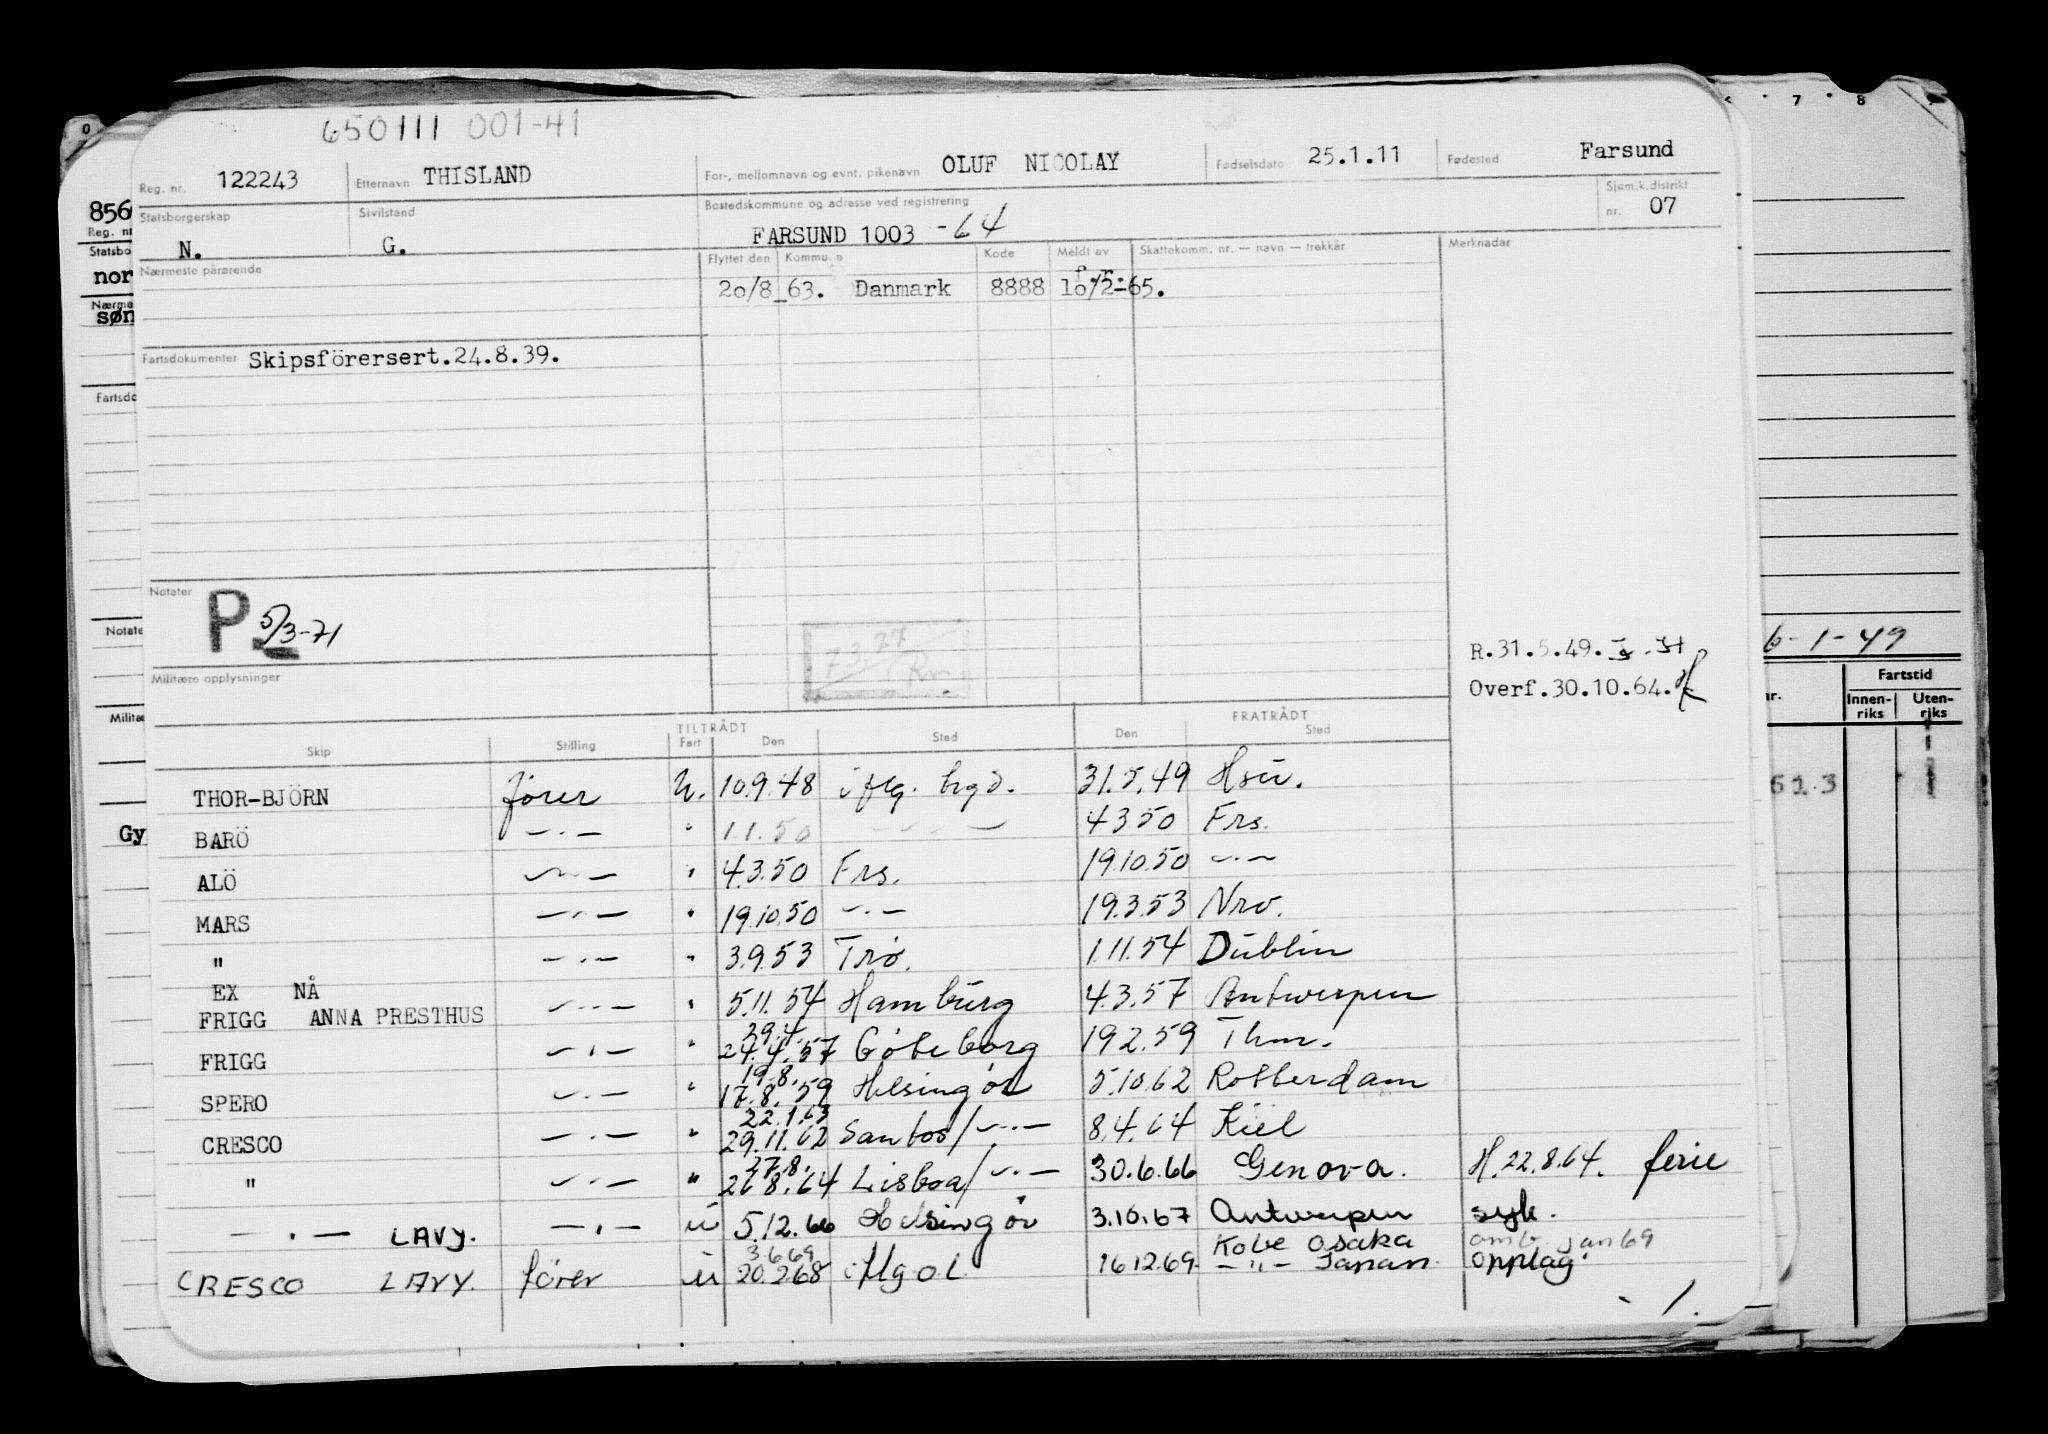 650111 001-41
Reg. nr. 122243 Etternavn THISLAND For-, mellomnavn og evnt. pikenavn OLUF NICOLAY Fødselsdato 25.1.11 Fødested Farsund
Statsborgerskap N. Sivilstand G. Bostedskommune og adresse ved registrering FARSUND 1003 -64 Sjøm.k.distrikt nr. 07
Nærmeste pårørende Flyttet den Kommune Kode Meldt av Skattekomm. nr. — navn — trekkår Merknader
20/8_63. Danmark 8888 f.r. 10/2-65.
Fartsdokumenter Skipsförersert.24.8.39.
Notater P. 5/3-71
7.3.77 Rm
R.31.5.49.
Militære opplysninger Overf.30.10.64.
TILTRÅDT FRATRÅDT
Skip Stilling Fart Den Sted Den Sted
THOR-BJÖRN förer U. 10.9.48 i flg. bgd. 31.5.49 Hsu.
BARÖ —.— " 1.1.50 —.— 4350 Frs.
ALÖ —.— " 4.3.50 Frs. 19.10.50 —.—
MARS —.— " 19.10.50 —.— 19.3.53 Nrv.
" —.— " 3.9.53 Trö. 1.11.54 Dublin
EX NÅ
FRIGG ANNA PRESTHUS —.— " 5.11.54 Hamburg 4.3.57 Antwerpen
29.4.
FRIGG —.— " 24.4.57 Göteborg 19.2.59 Thm.
19.8.
SPERO —.— " 17.8.59 Helsingör 5.10.62 Rotterdam
22.1.63
CRESCO —.— " 29.11.62 Santos/—.— 8.4.64 Kiel
27.8.
" —.— " 26 8.64 Lisboa/—.— 30.6.66 Genova. H.22.8.64. ferie
—.— LAVY. —.— u 5.12.66 Helsingör 3.10.67 Antwerpen syk.
3669 Kobe Osaka omb. jan 69
CRESCO LAVY. förer u 20.2.68 i Algol 16.12.69 —"— Japan. Opplag
1.
0
856
Reg. nr
Statsbo
nor
Nærme
søn
Fartsdo
Notate
Militæ
Gy
7 8
6-1-49
Fartstid
nr. Innen-riks Uten-riks
61.3